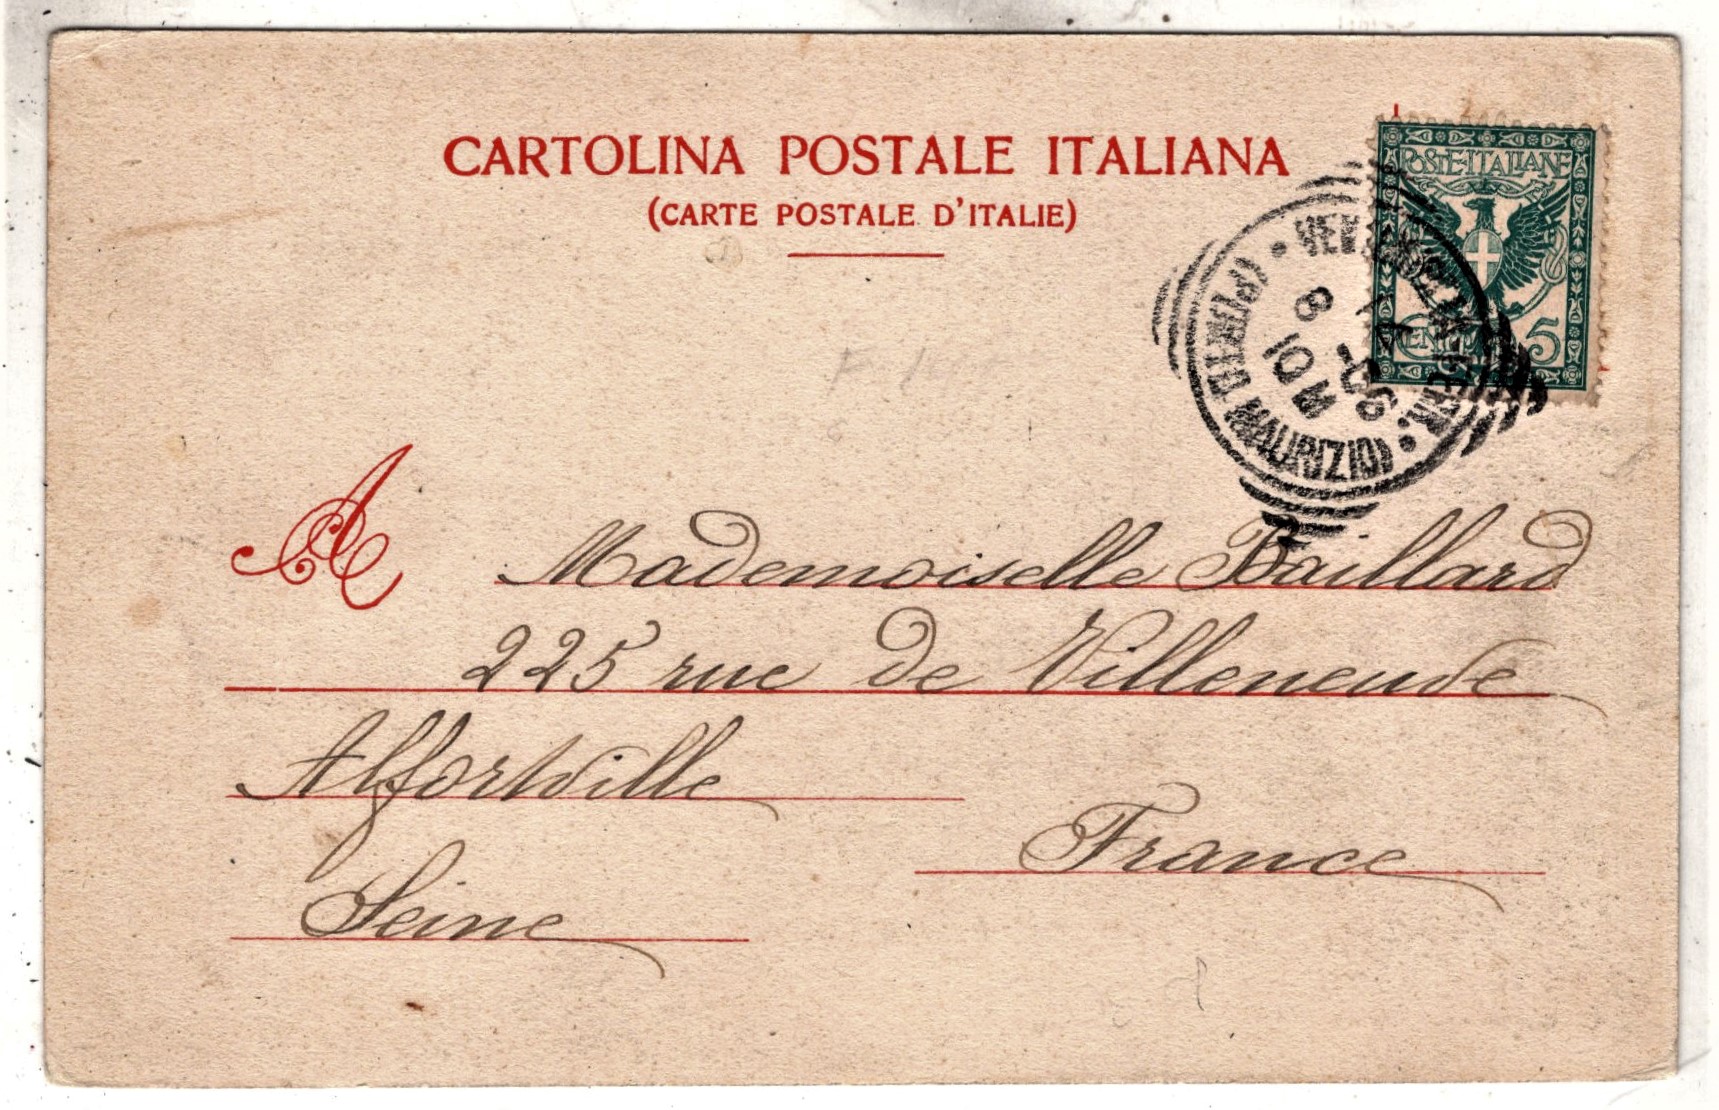 CARTOLINA POSTALE ITALIANA
(CARTE POSTALE D'ITALIE)
POSTE·ITALIANE
5
(P.MTO MAURIZIO)
8
10 M
A Mademoiselle Baillard
225 rue de Villeneuve
Alfortville
France
Seine